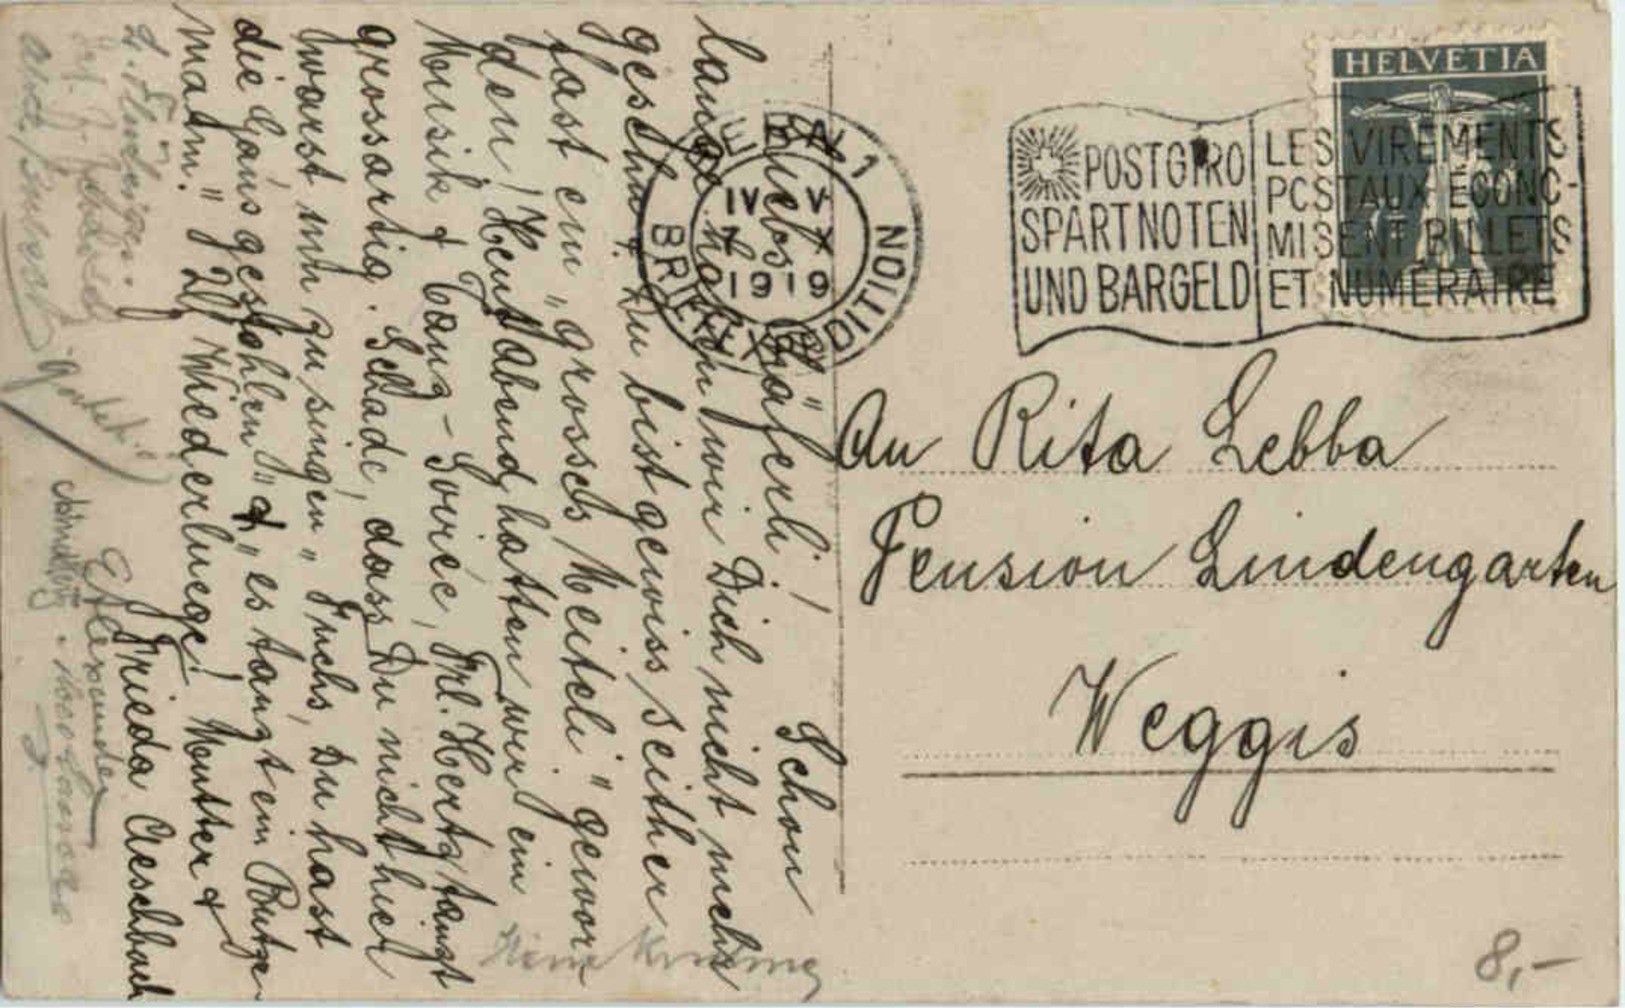 HELVETIA
POSTGIRO
SPART NOTEN
UND BARGELD
LES VIREMENTS
POSTAUX ECONO-
MISENT BILLETS
ET NUMERAIRE
BRIEFEXPEDITION
IV V
7 X
1919
An Rita Lebba
Pension Lindengarten
Weggis
8,-
Liebes Schäferli! Schon
lange haben wir Dich nicht mehr
gesehn & Du bist gewiss seither
fast ein „grosses Meiteli" gewor
den! Heut Abend hatten wir ein
Musik & Tanz-Soirée, Frl. Hertz tanzt
grossartig. Schade, dass Du nicht hier
warst um zu singen „Fuchs, Du hast
die Gans gestohlen" & „es tanzt ein Butze-
mann." Wiederluege! Mutter &
Frieda Aeschbach